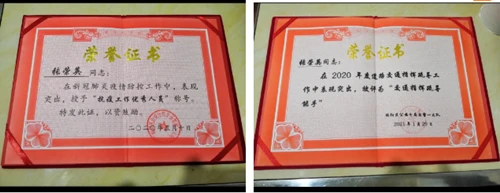 荣誉证书
张荣英 同志:
在新冠肺炎疫情防控工作中,表现
突出,授予“抗疫工作优秀人员”称号。
特发此证,以资鼓励。
二〇二〇年三月十日
荣誉证书
张荣英同志:
在 2020 年度道路交通指挥疏导工
作中表现突出,被评为“交通指挥疏导
能手”
2021年1月25日